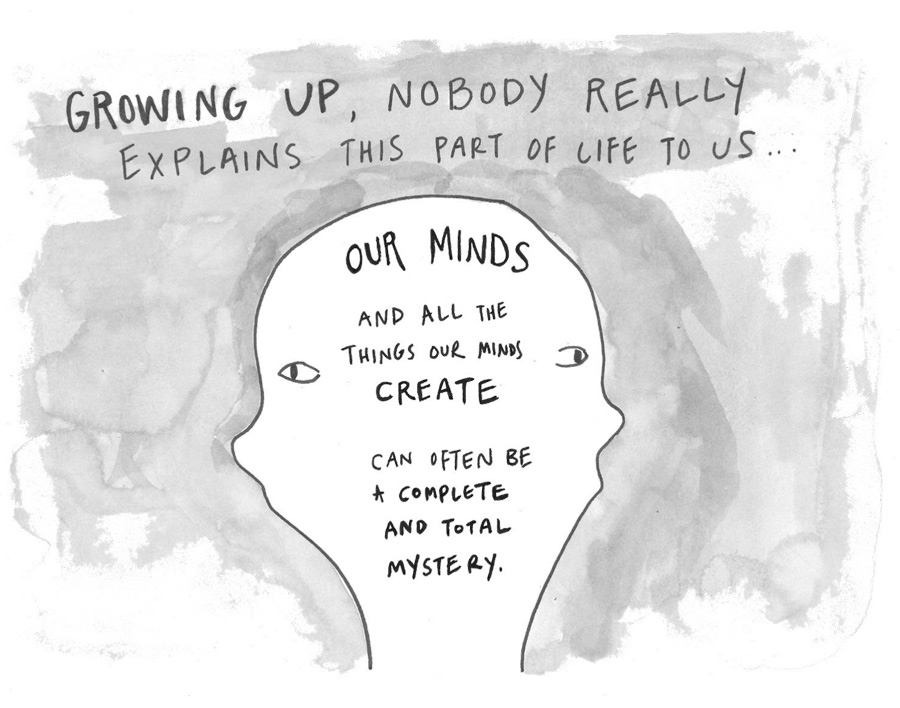 GROWING UP, NOBODY REALLY
EXPLAINS THIS PART OF LIFE TO US...
OUR MINDS
AND ALL THE
THINGS OUR MINDS
CREATE
CAN OFTEN BE
A COMPLETE
AND TOTAL
MYSTERY.